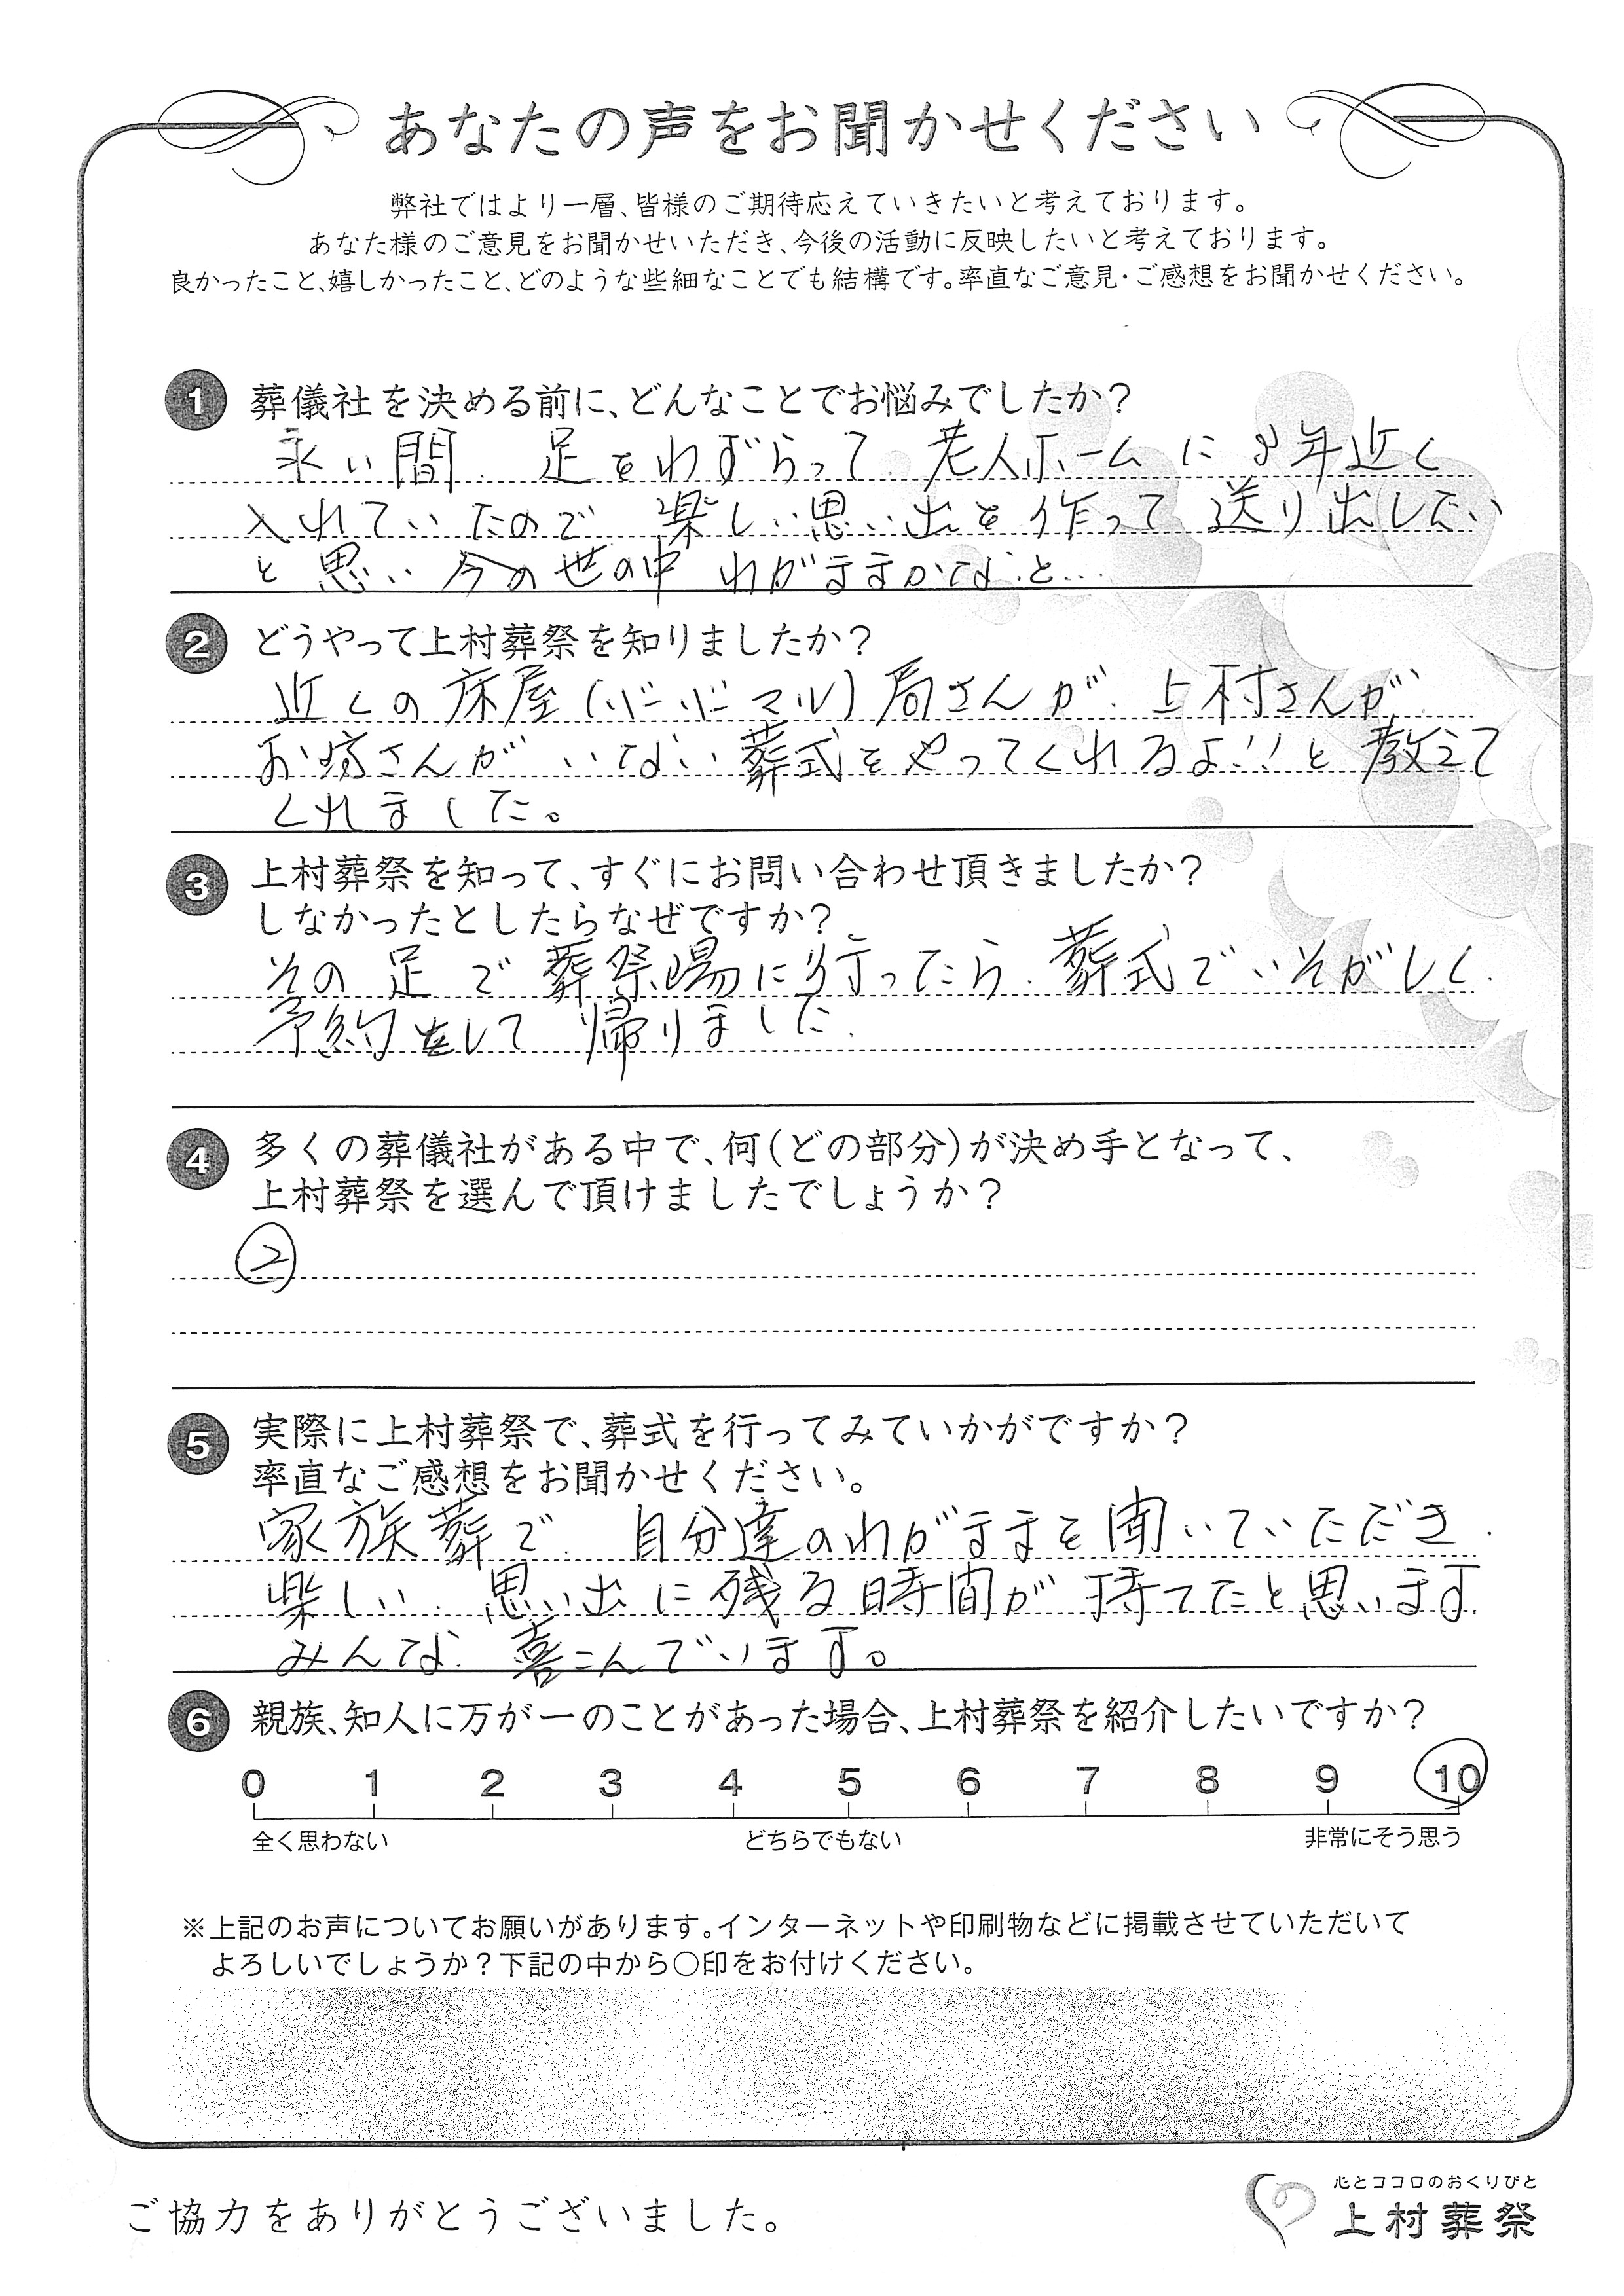 あなたの声をお聞かせください
弊社ではより一層、皆様のご期待応えていきたいと考えております。
あなた様のご意見をお聞かせいただき、今後の活動に反映したいと考えております。
良かったこと、嬉しかったこと、どのような些細なことでも結構です。率直なご意見・ご感想をお聞かせください。
1 葬儀社を決める前に、どんなことでお悩みでしたか？
永い間 足をわずらって 老人ホームに8年近く
入れていたので 楽しい思い出を作って送り出したい
と思い 今の世の中 わがままかなと…
2 どうやって上村葬祭を知りましたか？
近くの床屋(バーバーマル)局さんが、上村さんが
お坊さんがいない葬式をやってくれるよ!!と教えて
くれました。
3 上村葬祭を知って、すぐにお問い合わせ頂きましたか？
しなかったとしたらなぜですか？
その足で葬祭場に行ったら、葬式でいそがしく
予約をして 帰りました
4 多くの葬儀社がある中で、何（どの部分）が決め手となって、
上村葬祭を選んで頂けましたでしょうか？
②
5 実際に上村葬祭で、葬式を行ってみていかがですか？
率直なご感想をお聞かせください。
家族葬で 自分達のわがままを聞いていただき
楽しい 思い出に残る時間が持てたと思います
みんな 喜こんでいます。
6 親族、知人に万が一のことがあった場合、上村葬祭を紹介したいですか？
0 1 2 3 4 5 6 7 8 9 10
全く思わない どちらでもない 非常にそう思う
※上記のお声についてお願いがあります。インターネットや印刷物などに掲載させていただいて
よろしいでしょうか？下記の中から〇印をお付けください。
ご協力をありがとうございました。
心とココロのおくりびと
上村葬祭